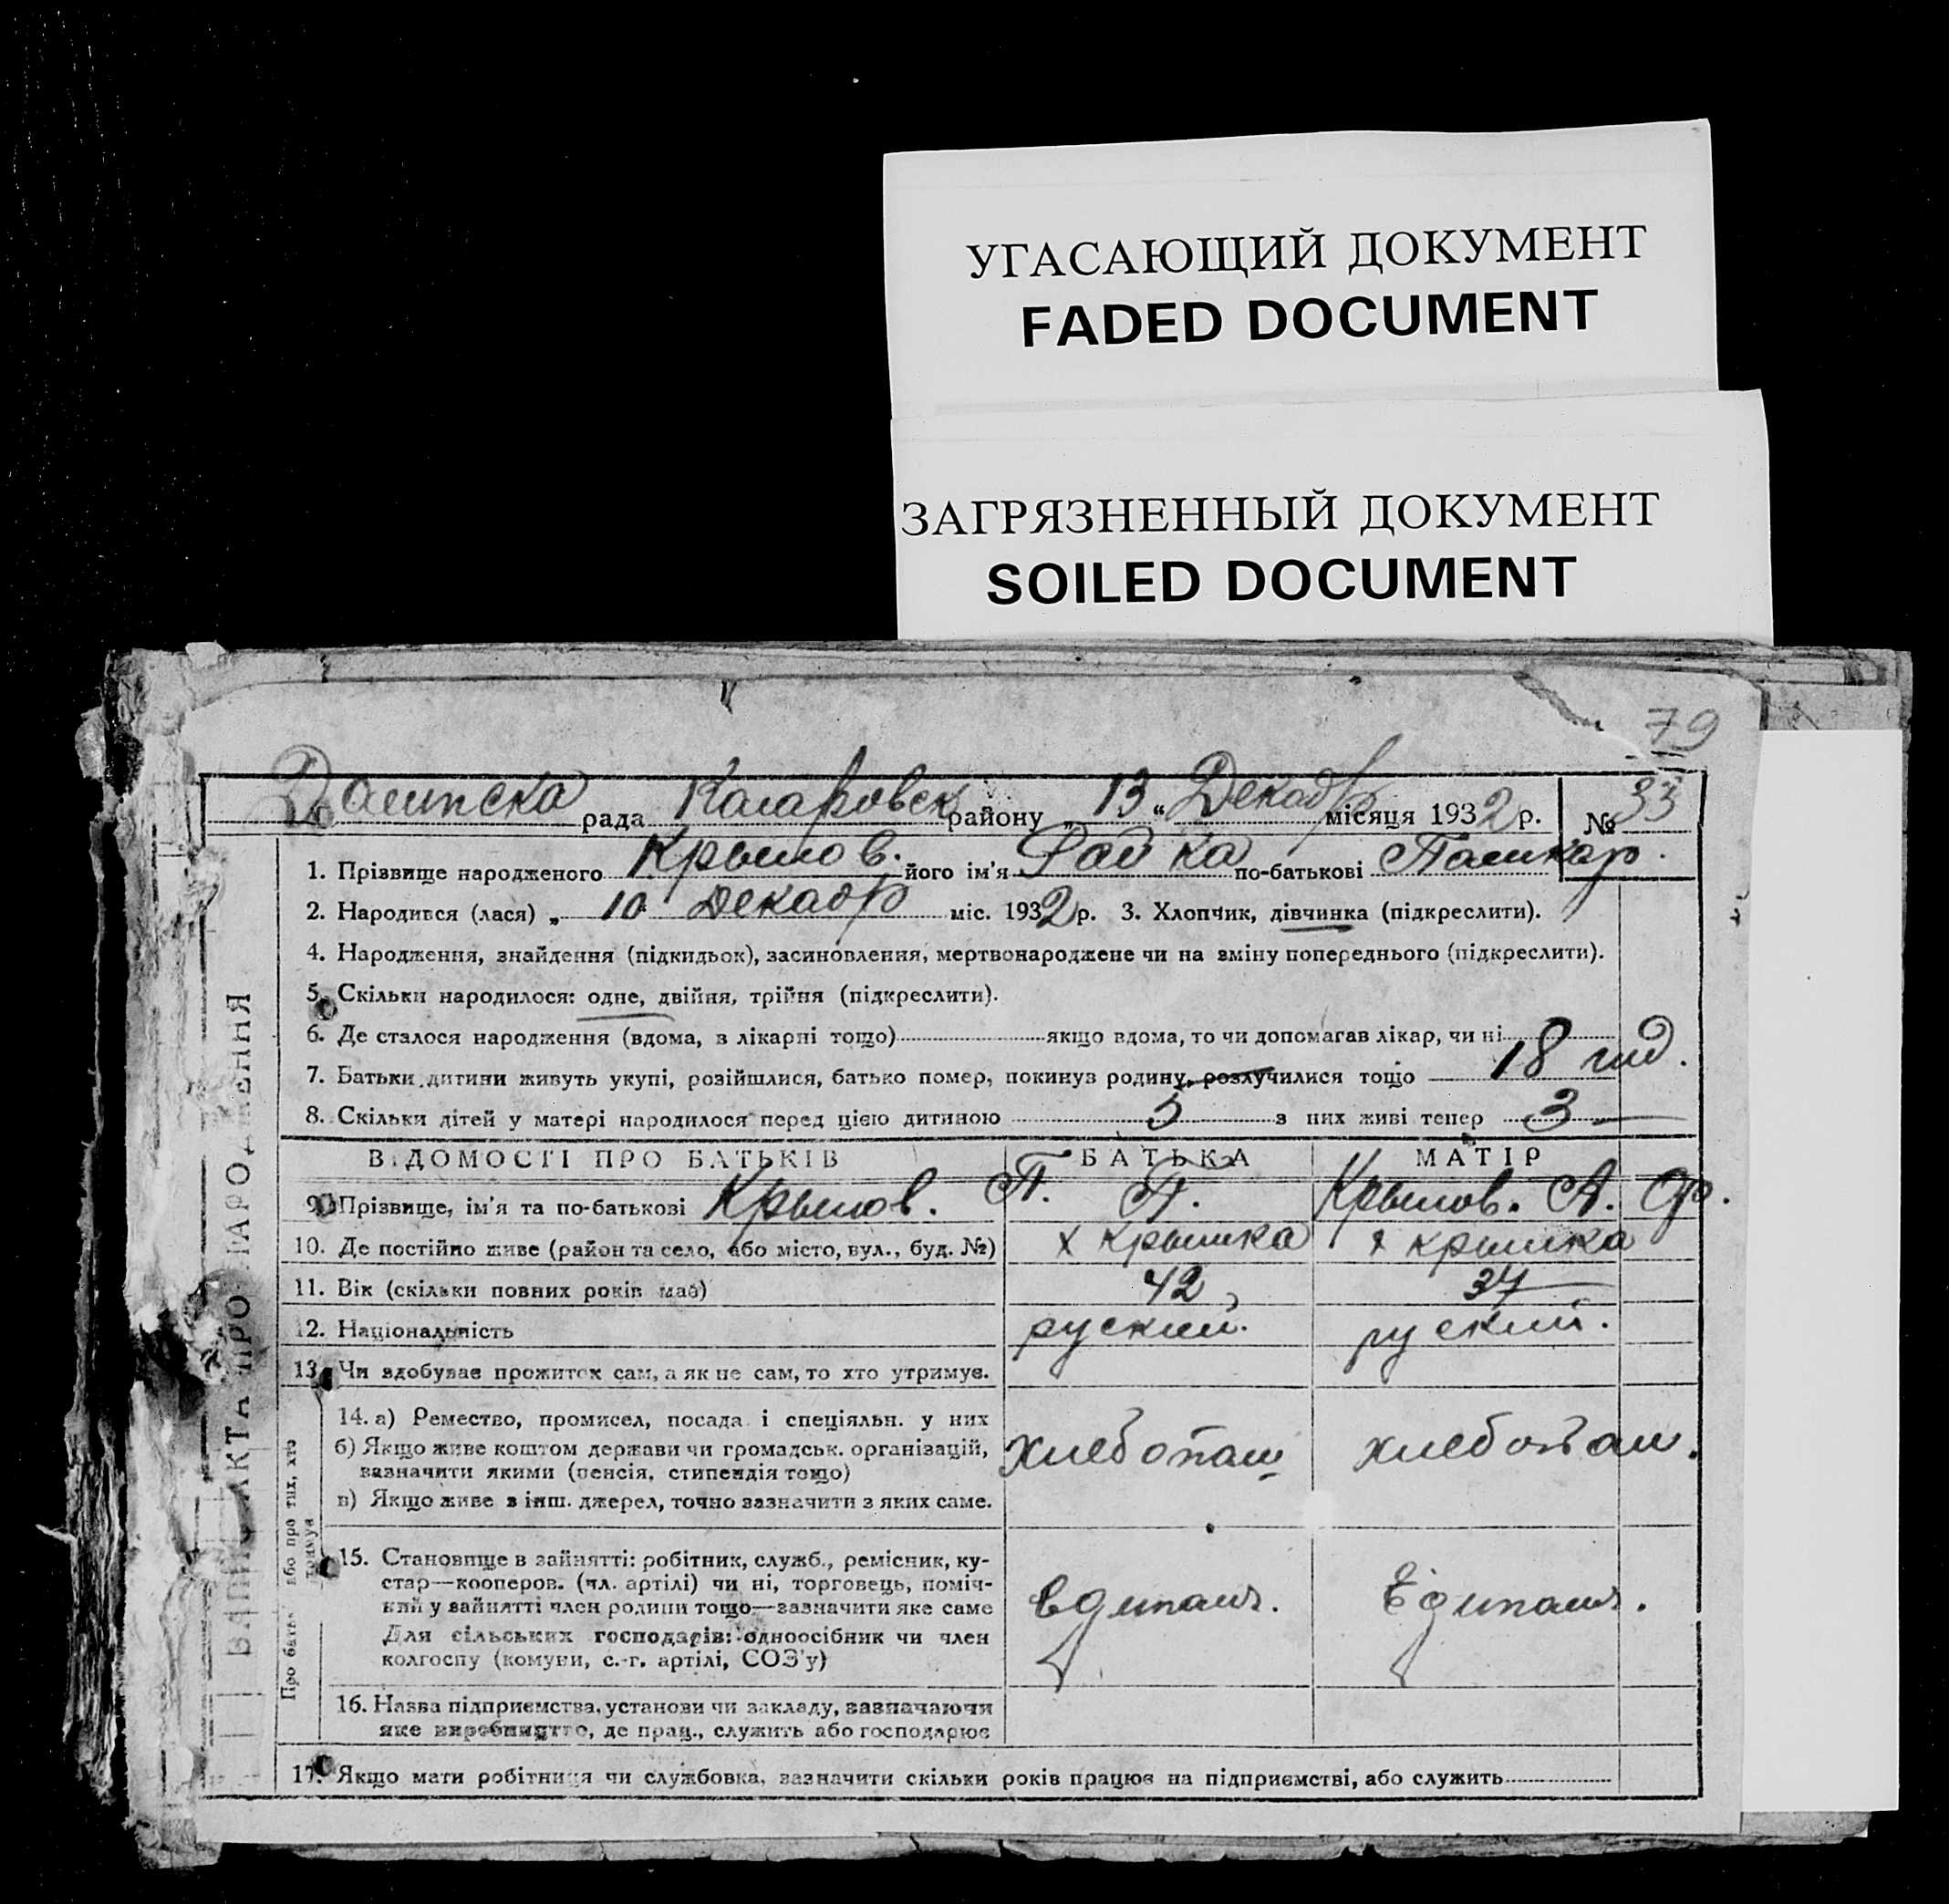 УГАСАЮЩИЙ ДОКУМЕНТ
FADED DOCUMENT
ЗАГРЯЗНЕННЫЙ ДОКУМЕНТ
SOILED DOCUMENT
79
рада району „ 13 “ Декабр місяця 1932 р. № 33
1. Прізвище народженого Крылов. його ім'я по-батькові
2. Народився (лася) „ 10 Декабр міс. 1932 р. 3. Хлопчик, дівчинка (підкреслити).
4. Народження, знайдення (підкидьок), засиновлення, мертвонароджене чи на зміну попереднього (підкреслити).
5. Скільки народилося: одне, двійня, трійня (підкреслити).
6. Де сталося народження (вдома, в лікарні тощо) якщо вдома, то чи допомагав лікар, чи ні
7. Батьки дитини живуть укупі, розійшлися, батько помер, покинув родину, розлучилися тощо 18 год.
8. Скільки дітей у матері народилося перед цією дитиною 5 з них живі тепер 3
ВІДОМОСТІ ПРО БАТЬКІВ БАТЬКА МАТІР
9. Прізвище, ім'я та по-батькові Крылов. П. П. Крылов. А. Ф.
10. Де постійно живе (район та село, або місто, вул., буд. №) х Крынка х Крынка
11. Вік (скільки повних років має) 42 37
12. Національність руский. руский.
13. Чи здобуває прожиток сам, а як не сам, то хто утримує.
14. а) Ремество, промисел, посада і спеціяльн. у них
б) Якщо живе коштом держави чи громадськ. організацій,
зазначити якими (пенсія, стипендія тощо)
в) Якщо живе з інш. джерел, точно зазначити з яких саме.
хлебопаш хлебопаш.
15. Становище в зайнятті: робітник, служб., ремісник, ку-
стар—кооперов. (чл. артілі) чи ні, торговець, поміч-
ний у зайнятті член родини тощо—зазначити яке саме
Для сільських господарів: одноосібник чи член
колгоспу (комуни, с.-г. артілі, СОЗ'у)
16. Назва підприємства, установи чи закладу, зазначаючи
яке виробництво, де прац., служить або господарює
17. Якщо мати робітниця чи службовка, зазначити скільки років працює на підприємстві, або служить
ЗАПИС АКТА ПРО НАРОДЖЕННЯ